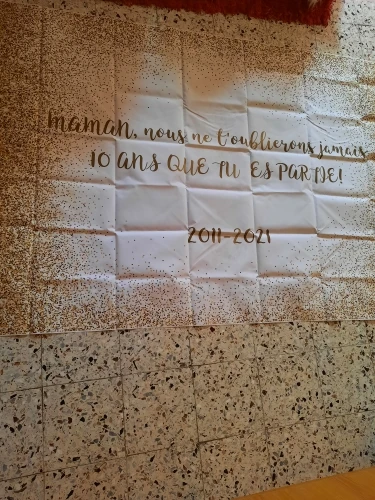 maman, nous ne t'oublierons jamais
10 ANS QUE TU ES PARTIE!
2011-2021